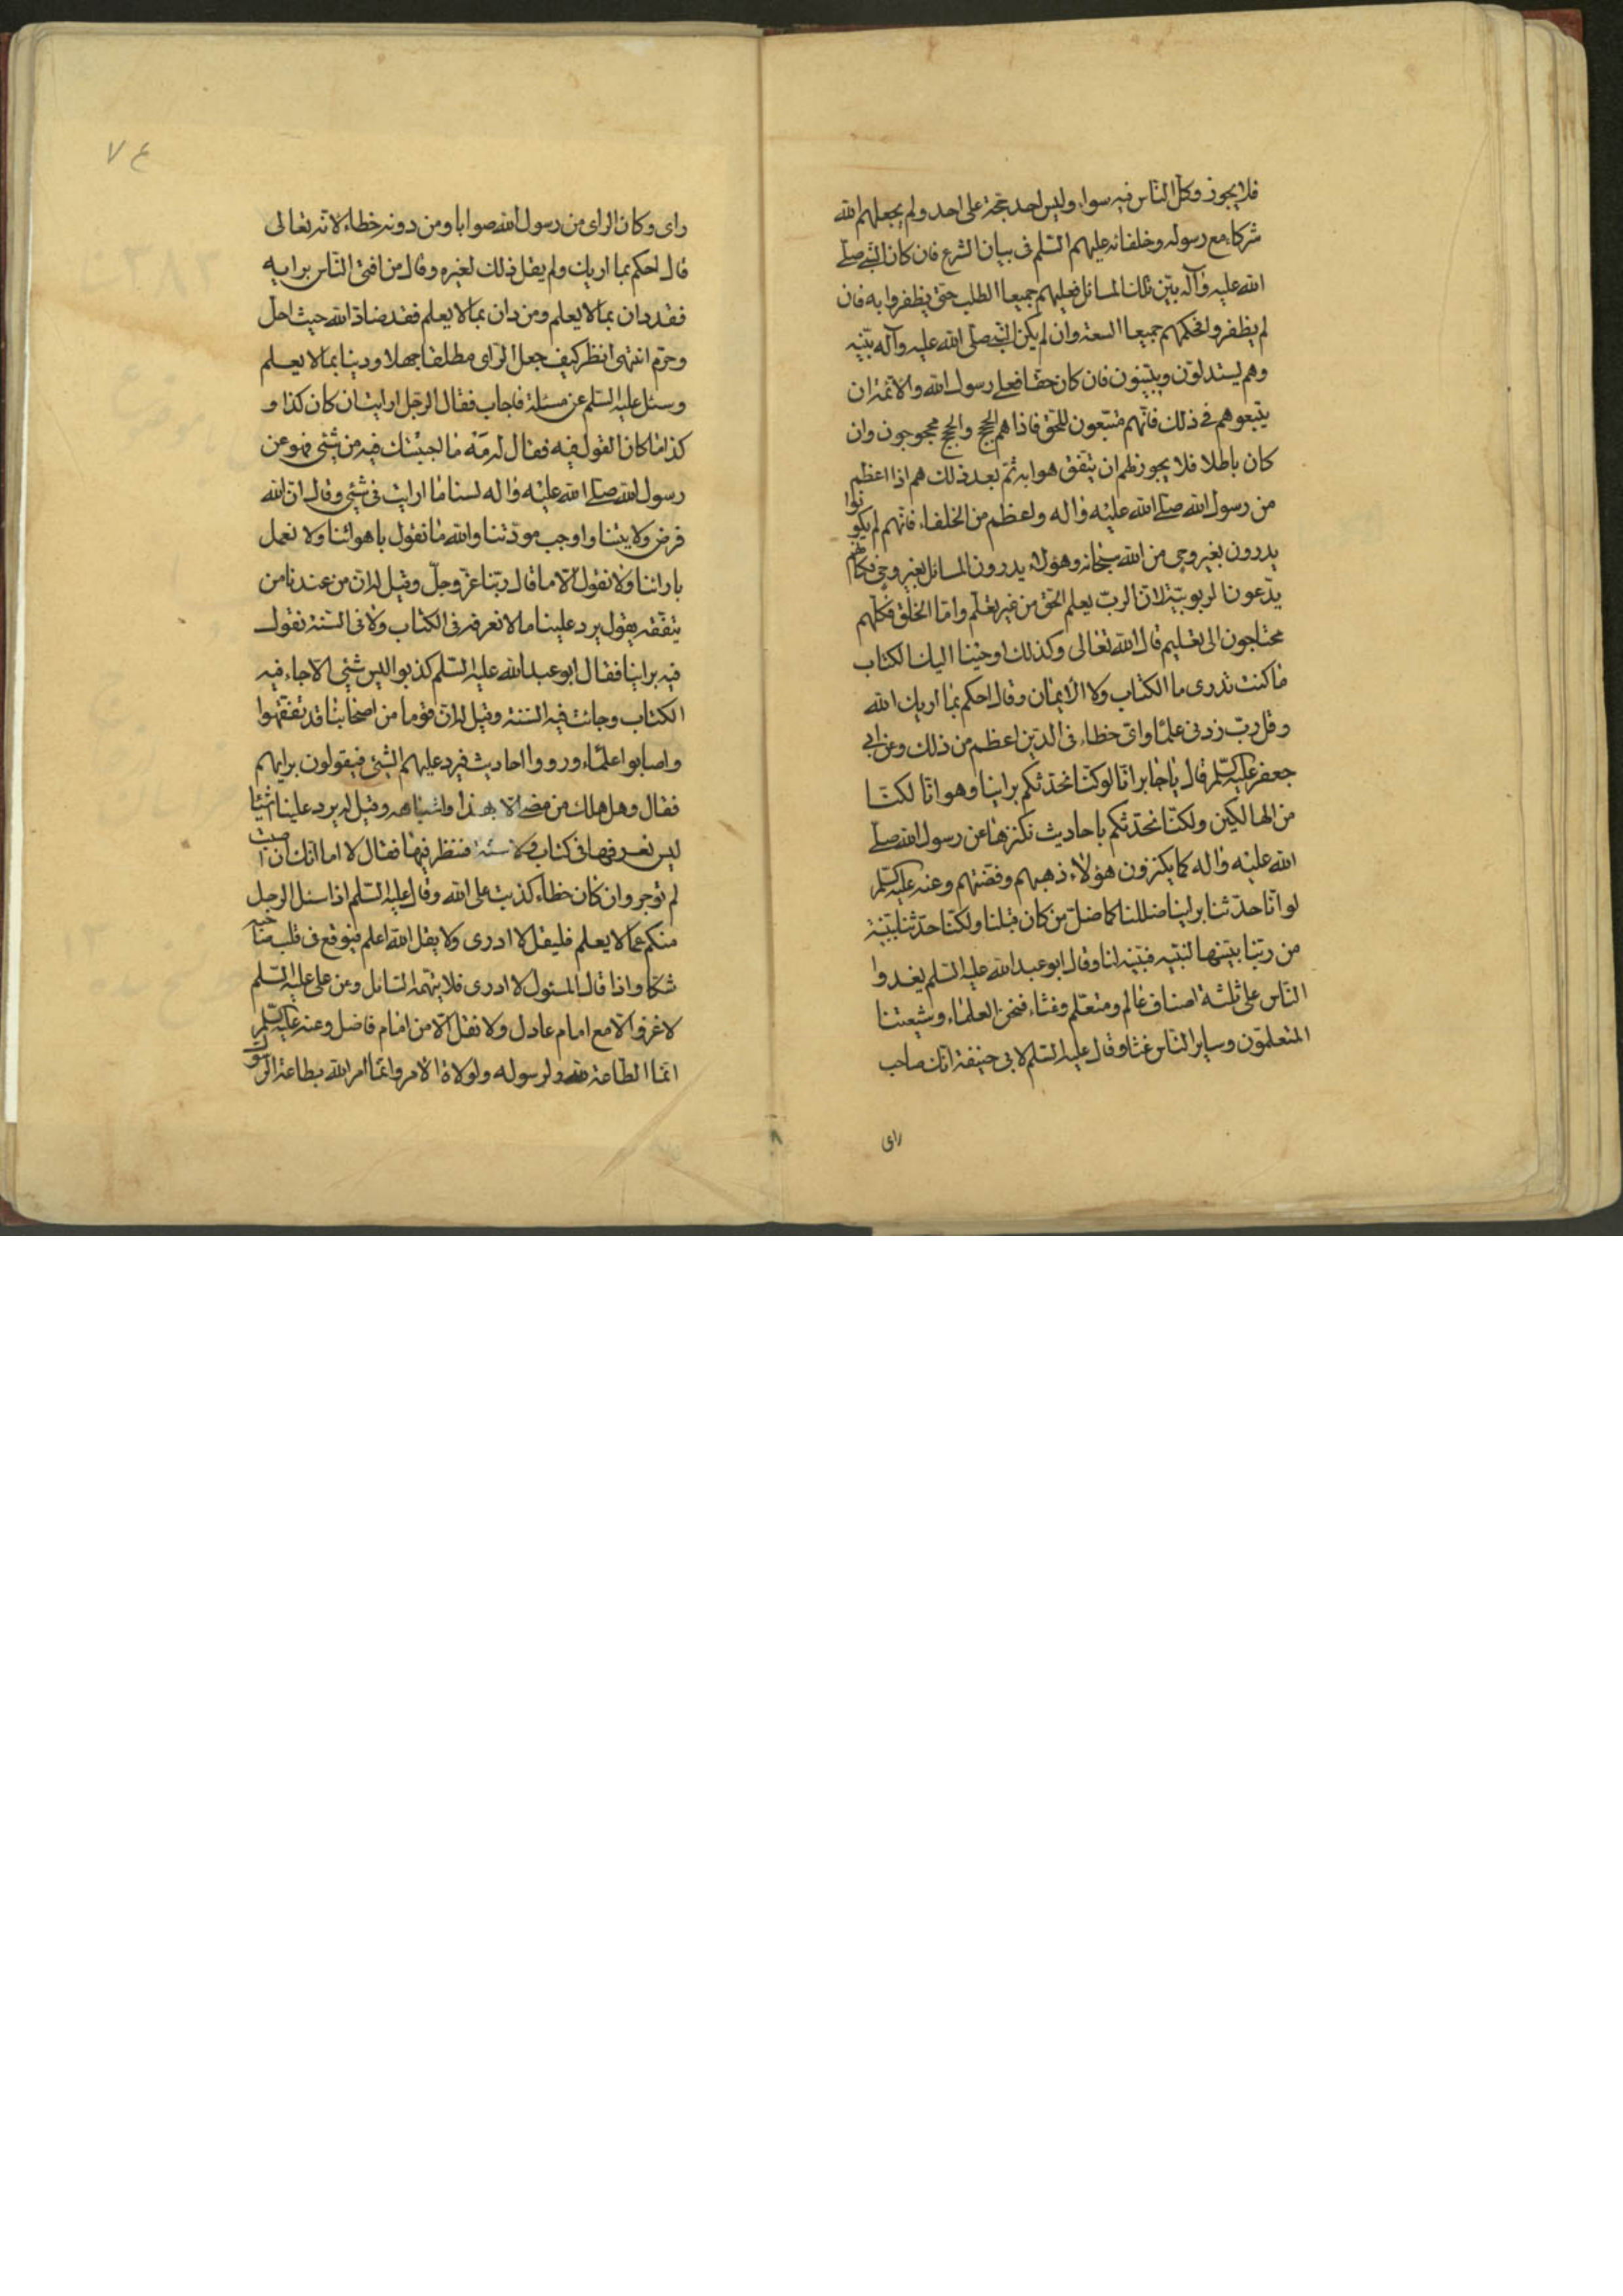 فلا يجوز وكل الناس فيه سواء وليس احد بحجة على احد ولم يجعلهم الله
شركاء مع رسوله وخلفائه عليهم السلم فى بيان الشرع فان كان النبى صلى
الله عليه وآله بيّن تلك المسائل فعليهم جميعا الطلب حتى يظفروا به فان
لم يظفروا فحكمهم جميعا السعة وان لم يكن النبى صلى الله عليه وآله بيّنه
وهم يستدلون ويبينون فان كان حقا فعلى رسول الله والائمة ان
يتبعوهم فى ذلك فانهم متبعون للحق فاذا هم الحجج والحجج محجوجون وان
كان باطلا فلا يجوز لهم ان يتفق هوا به ثم بعد ذلك هم اذا اعظم
من رسول الله صلى الله عليه واله واعظم من الخلفاء فانهم لم يكونوا
يدرون بغير وحى من الله سبحانه وهؤلاء يدرون المسائل بغير وحى فكانهم
يدّعون الربوبية لان الرب يعلم الحق من غير تعلم واما الخلق فكلهم
محتاجون الى تعليم قال الله تعالى وكذلك اوحينا اليك الكتاب
ما كنت تدرى ما الكتاب ولا الايمان وقال احكم بما اريك الله
وقل رب زدنى علما واى خطاء فى الدين اعظم من ذلك وعن ابى
جعفر عليه السلم قال يا جابر انا لو كنا نحدثكم براينا وهوانا لكنا
من الهالكين ولكنا نحدثكم باحاديث نكنزها عن رسول الله صلى
الله عليه واله كما يكنزون هؤلاء ذهبهم وفضتهم وعنه عليه السلم
لو انا حدثنا براينا ضللنا كما ضل من كان قبلنا ولكنا حدثنا ببينة
من ربنا بينها لنبيه فبينه لنا وقال ابو عبد الله عليه السلم يغدوا
الناس على ثلثة اصناف عالم ومتعلم وغثاء فنحن العلماء وشيعتنا
المتعلمون وساير الناس غثاء وقال عليه السلم لابى حنيفة انك صاحب
راى
٧٤
راى وكان الراى من رسول الله صوابا ومن دونه خطاء لانه تعالى
قال احكم بما اريك ولم يقل ذلك لغيره وقال من افتى الناس برايه
فقد دان بما لا يعلم ومن دان بما لا يعلم فقد ضاد الله حيث احل
وحرم انتهى انظر كيف جعل الراى مطلقا جهلا ودينا بما لا يعلم
وسئل عليه السلم عن مسئلة فاجاب فقال الرجل ارايت ان كان كذا و
كذا ما كان القول فيه فقال له مه ما اجبتك فيه من شئ فهو عن
رسول الله صلى الله عليه واله لسنا ما ارايت فى شئ وقال ان الله
فرض ولايتنا واوجب مودتنا والله ما نقول باهوائنا ولا نعمل
بارائنا ولا نقول الا ما قال ربنا عز وجل وقيل له ان من عندنا من
يتفقه يقول يرد علينا ما لا نعرفه فى الكتاب ولا فى السنة نقول
فيه براينا فقال ابو عبد الله عليه السلم كذبوا ليس شئ الا جاء فيه
الكتاب وجائت فيه السنة وقيل له ان قوما من اصحابنا قد تفقهوا
واصابوا علما ورووا احاديث فيرد عليهم الشئ فيقولون برايهم
فقال وهل هلك من مضى الا بهذا واشباهه وقيل له يرد علينا اشياء
ليس نعرفها فى كتاب ولا سنة فننظر فيها فقال لا اما انك ان اصبت
لم توجر وان كان خطاء كذبت على الله وقال عليه السلم اذا سئل الرجل
منكم عما لا يعلم فليقل لا ادرى ولا يقل الله اعلم فيوقع فى قلب صاحبه
شكا واذا قال المسئول لا ادرى فلا يتهمه السائل وعن على عليه السلم
لا غزو الا مع امام عادل ولا نفل الا من امام فاضل وعنه عليه السلم
انما الطاعة لله ولرسوله ولولاة الامر وانما امر الله بطاعة الرسول